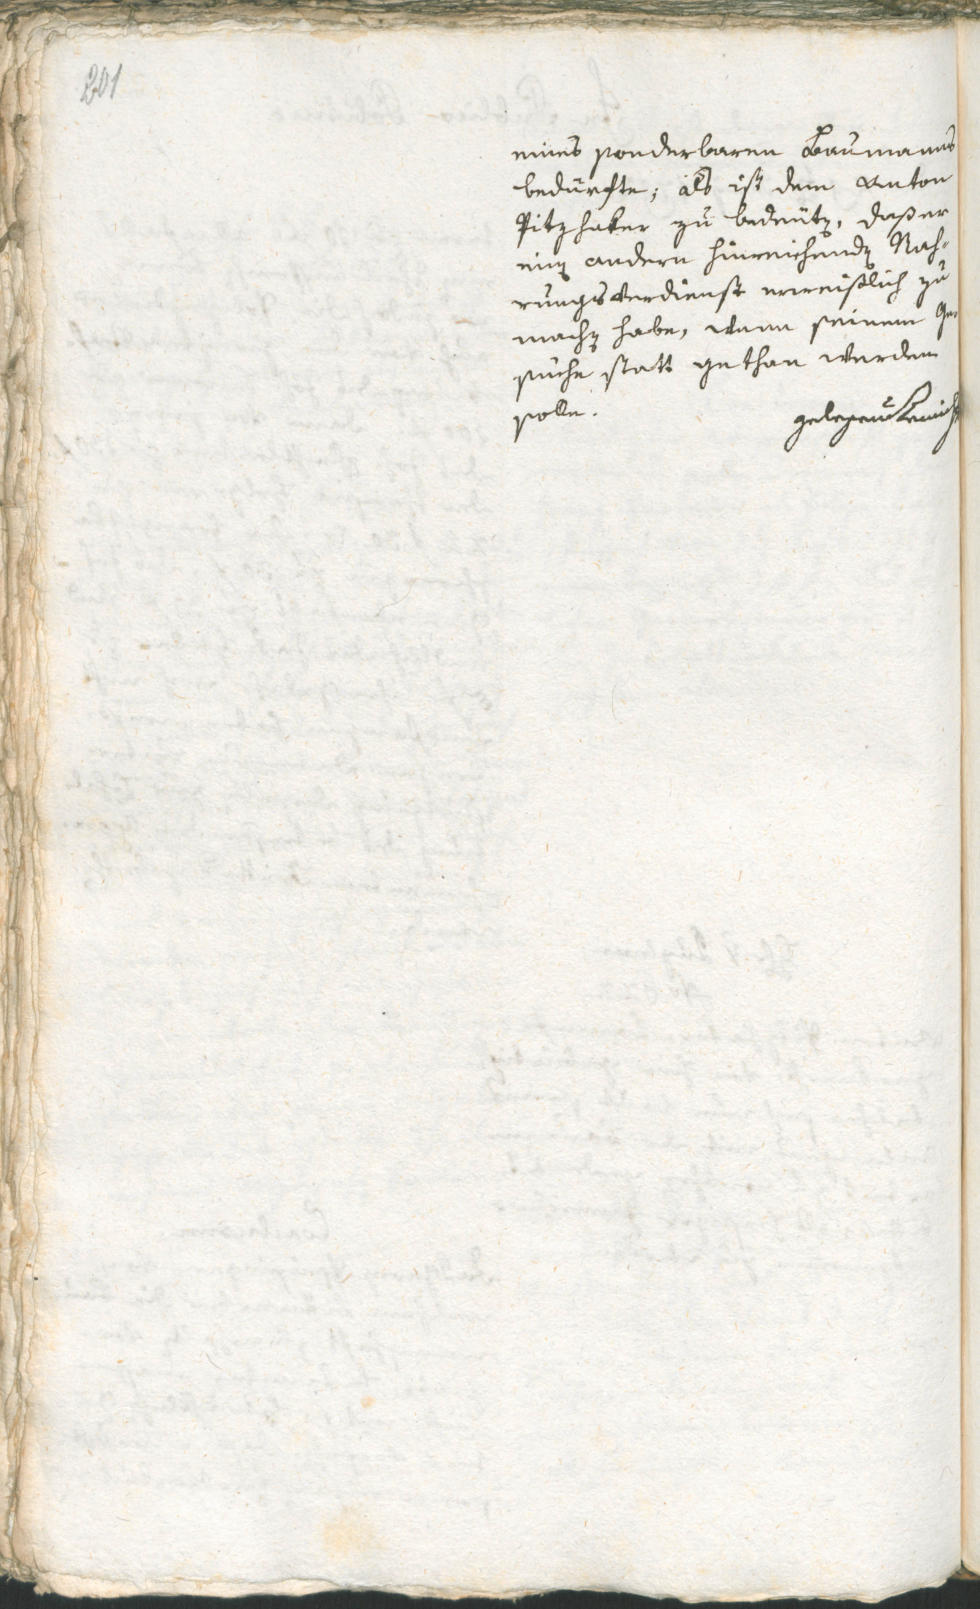 201
eines sonderbaren Baumanns
bedürfte; als ist dem Anton
Pitzhaker zu bedeuten, daß er
einen andern hinreichenden Nah-
rungsverdienst erweißlich zu
machen habe, wenn seinem Ge-
suche statt gethan werden
solle.